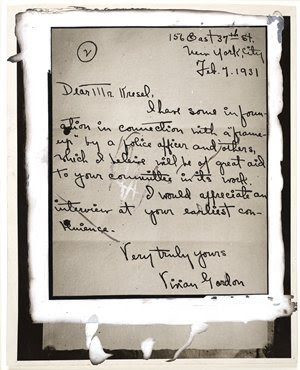 2
156 East 37th St.
New York City
Feb. 7, 1931
Dear Mr Kresel,
I have some inform-
ation in connection with a "frame-
up" by a police officer and others,
which I believe will be of great aid
to your committee in its work.
I would appreciate an
interview at your earliest con-
venience.
Very truly yours
Vivian Gordon